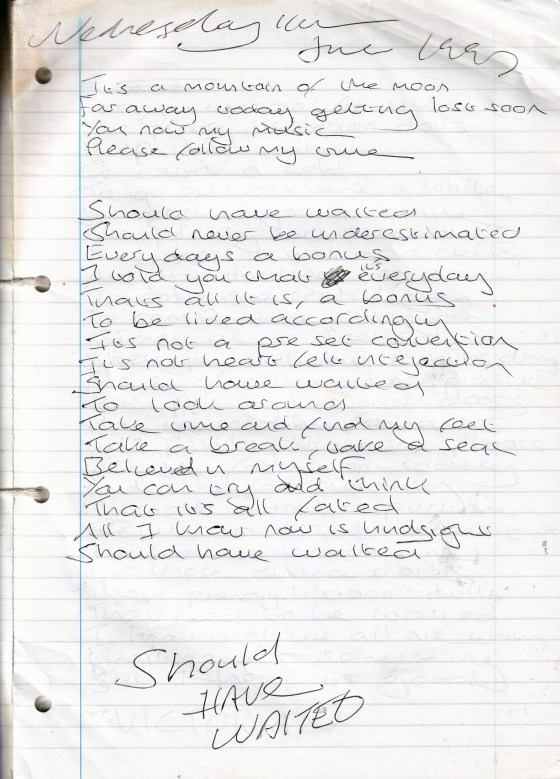 Wednesday 11th
June 1997
It's a mountain of the moon
Far away today getting lost soon
You now my music
Please follow my time
Should have waited
Should never be underestimated
Everydays a bonus
I told you that it's everyday
Thats all it is, a bonus
To be lived accordingly
It's not a pre set convention
It's not heart felt interjection
Should have waited
To look around
Take time and find my feet
Take a break, take a seat
Believed in myself
You can try and think
That it's all fated
All I know now is hindsight
Should have waited
Should
HAVE
WAITED